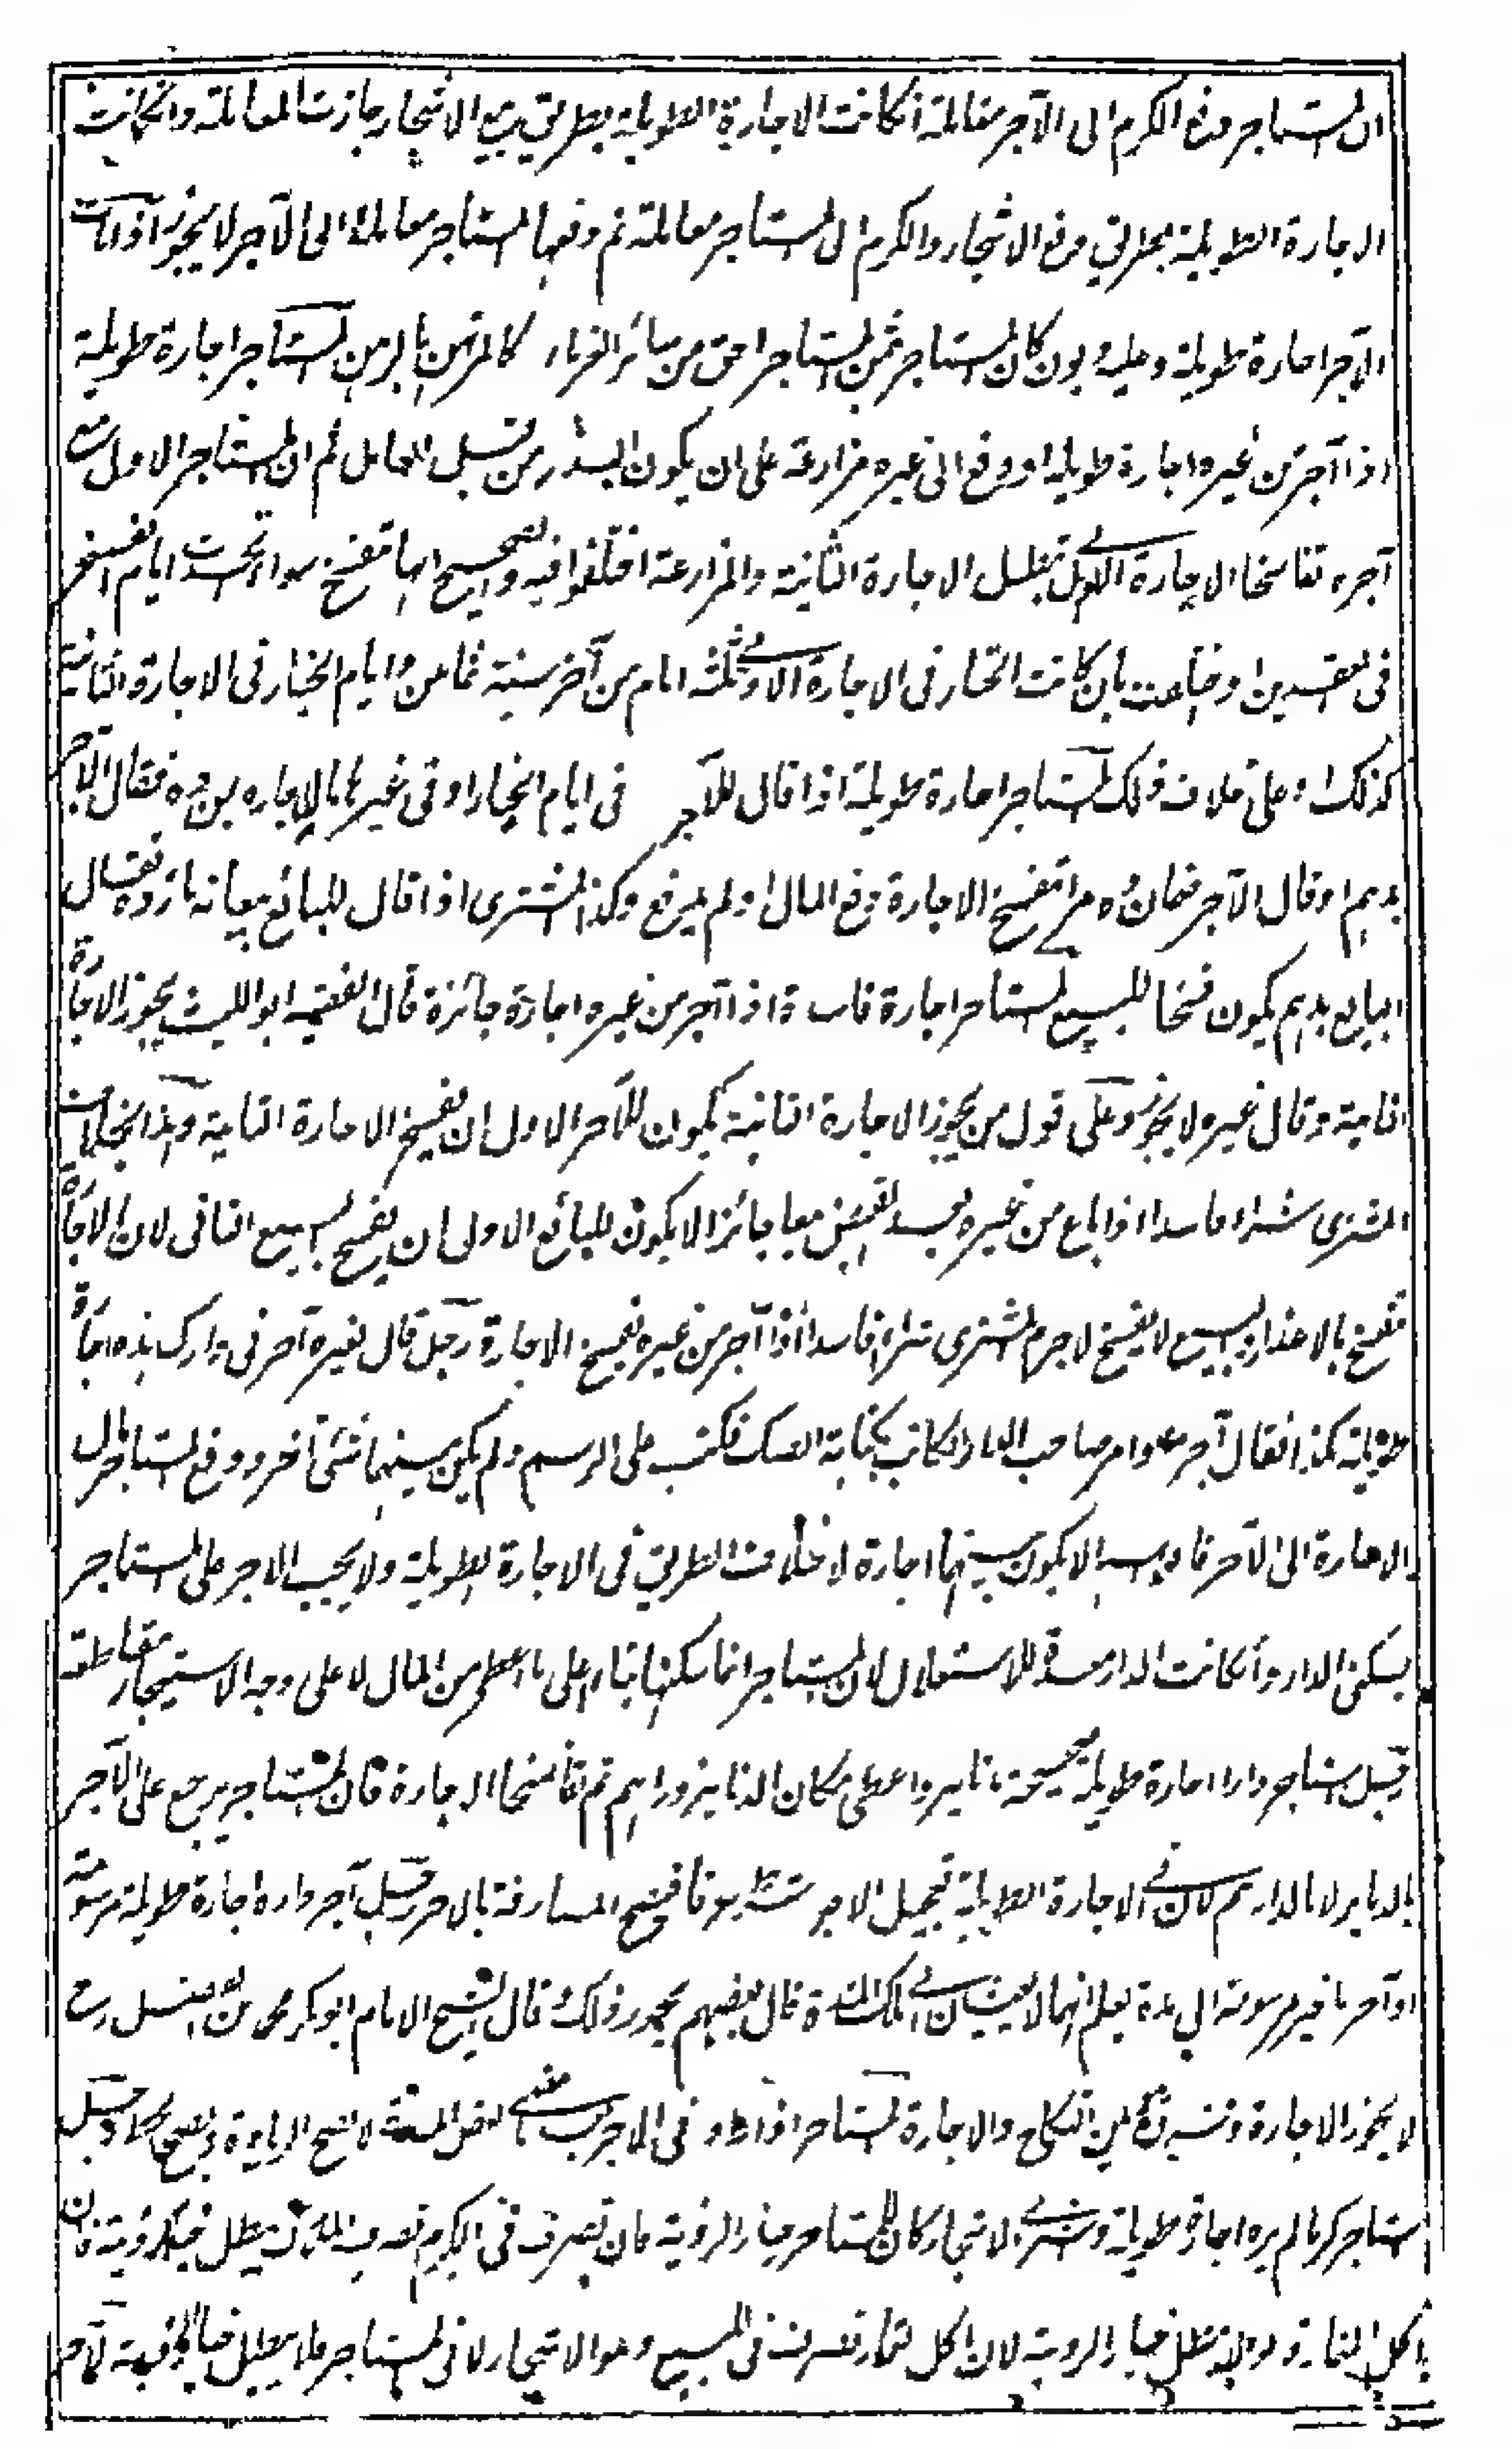 ان المستاجر دفع الكرم الى الآجر معاملة انكانت الاجارة الطويلة بطريق بيع الاشجار جازت المعاملة وانكانت
الاجارة الطويلة بطريق دفع الاشجار والكرم الى المستاجر معاملة ثم دفعها المستاجر معاملة الى الآجر لا يجوز اذا مات
الآجر اجارة طويلة وعليه ديون كان المستاجر بثمن المستاجر احق من سائر الغرماء كالمرتهن بالرهن المستاجر اجارة طويلة
اذا آجر من غيره اجارة طويلة او دفع الى غيره مزارعة على ان يكون البذر من قبل العامل ثم ان المستاجر الاول مع
آجره تفاسخا الاجارة الاولى هل تبطل الاجارة الثانية والمزارعة اختلفوا فيه والصحيح انها تنفسخ سواء اتحدت ايام الفسخ
فى العقدين او اختلفت بان كانت الخيار فى الاجارة الاولى ثلثة ايام من آخر سنة ثمان و ايام الخيار فى الاجارة الثانية
كذلك او على خلاف ذلك المستاجر اجارة طويلة اذا قال للآجر فى ايام الخيار او فى غيرها مال اجاره بمن ده فقال الآجر
بدهم او قال الآجر همان ده تنفسخ الاجارة دفع المال او لم يدفع وكذا المشترى اذا قال للبائع بيعانه بازده فقال
البايع بدهم يكون فسخا للبيع المستاجر اجارة فاسدة اذا آجر من غيره اجارة جائزة قال الفقيه ابو الليث يجوز الاجارة
الثانية وقال غيره لا يجوز وعلى قول من يجوز الاجارة الثانية يكون للآجر الاول ان يفسخ الاجارة الثانية وهذا بخلاف
المشترى شراء فاسدا اذا باع من غيره بعد القبض بيعا جائزا لا يكون للبائع الاول ان يفسخ البيع الثانى لان الاجارة
تنفسخ بالاعذار والبيع لا ينفسخ لا جرم المشترى شراء فاسدا اذا آجر من غيره تفسخ الاجارة رجل قال لغيره آجرنى دارك هذه اجارة
طويلة بكذا فقال آجر وامر صاحب الدار الكاتب بكتابة الصك فكتب على الرسم ولم يكن بينهما شئ آخر ودفع المستاجر مال
الاجارة الى الآجر قالوا لا يكون بينهما اجارة لاختلاف الطريق فى الاجارة الطويلة ولا يجب الاجر على المستاجر
بسكنى الدار وانكانت الدار معدة للاستغلال لان المستاجر انما سكنها بناء على ما اعطى من المال لا على وجه الاستيجار مقاطعة
رجل استاجر دارا اجارة طويلة صحيحة بدنانير واعطى مكان الدنانير دراهم ثم تفاسخا الاجارة فان المستاجر يرجع على الآجر
بالدنانير لا بالدراهم لان فى الاجارة الطويلة تعجيل الاجر شرط فافصح المصارفة بالاجر رجل آجر داره اجارة طويلة مرسومة
او آجرها غير مرسومة الى مدة يعلم انهما لا يعيشان الى تلك المدة قال بعضهم يجوز ذلك و قال الشيخ الامام ابو بكر محمد بن الفضل رح
لا يجوز الاجارة و بين النكاح والاجارة المستاجر اذا زاد فى الاجر بعد ما مضى بعض المدة لا تصح الزيادة ويصح الحط رجل
استاجر كرما لم يره اجارة طويلة وشرى الاشجار كان للمستاجر خيار الرؤية فان تصرف فى الكرم تصرف الملاك يبطل خيار رؤيته فان
اكل الثمار لا يبطل خيار الرؤية لان اكل الثمار تصرف فى المبيع وهو الاشجار لا فى المستاجر فلا يبطل خيار الرؤية